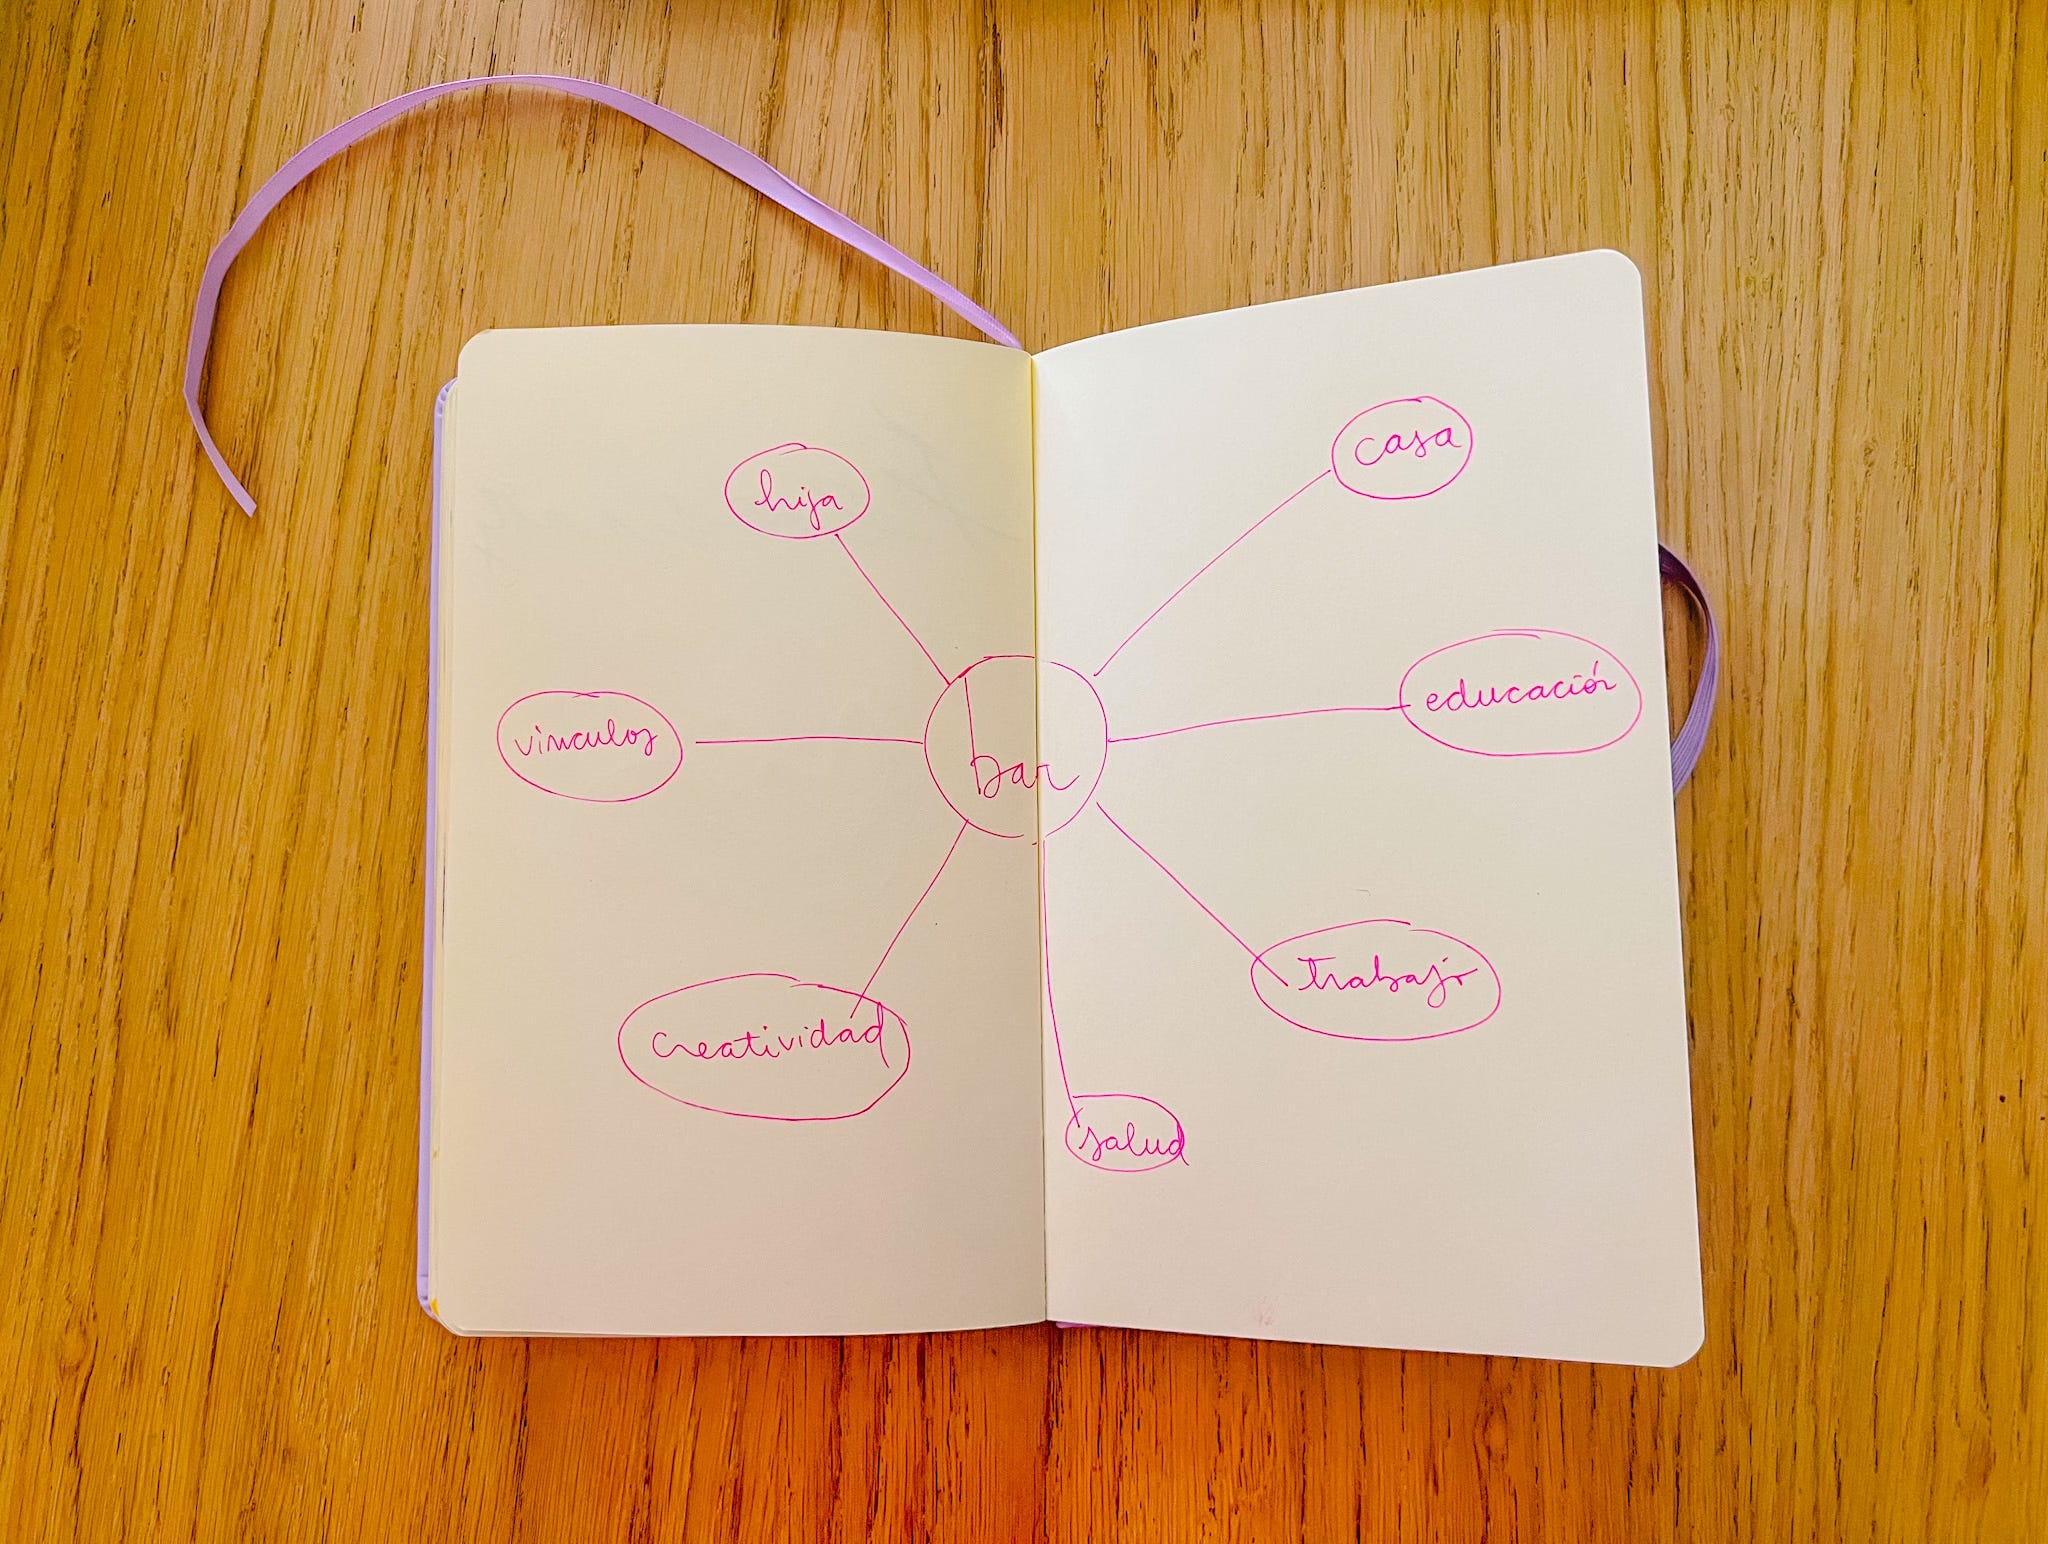 casa
hija
educación
vinculos
bar
trabajo
creatividad
salud